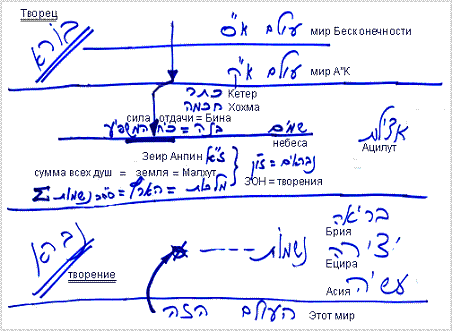 Творец
בורא
עולם א"ס мир Бесконечности
עולם א"ק мир А"К
כתר Кетер
חכמה Хохма
сила отдачи = Бина
בינה = כוח המשפיע
שמים
небеса
אצילות
Ацилут
Зеир Анпин ז"א
נבראים = זו"ן
сумма всех душ = земля = Малхут
ЗОН = творения
Σ נשמות = סה"כ = הארץ = מלכות
בריאה
Брия
נברא
נשמות
יצירה
Ецира
творение
עשיה
Асия
העולם הזה Этот мир